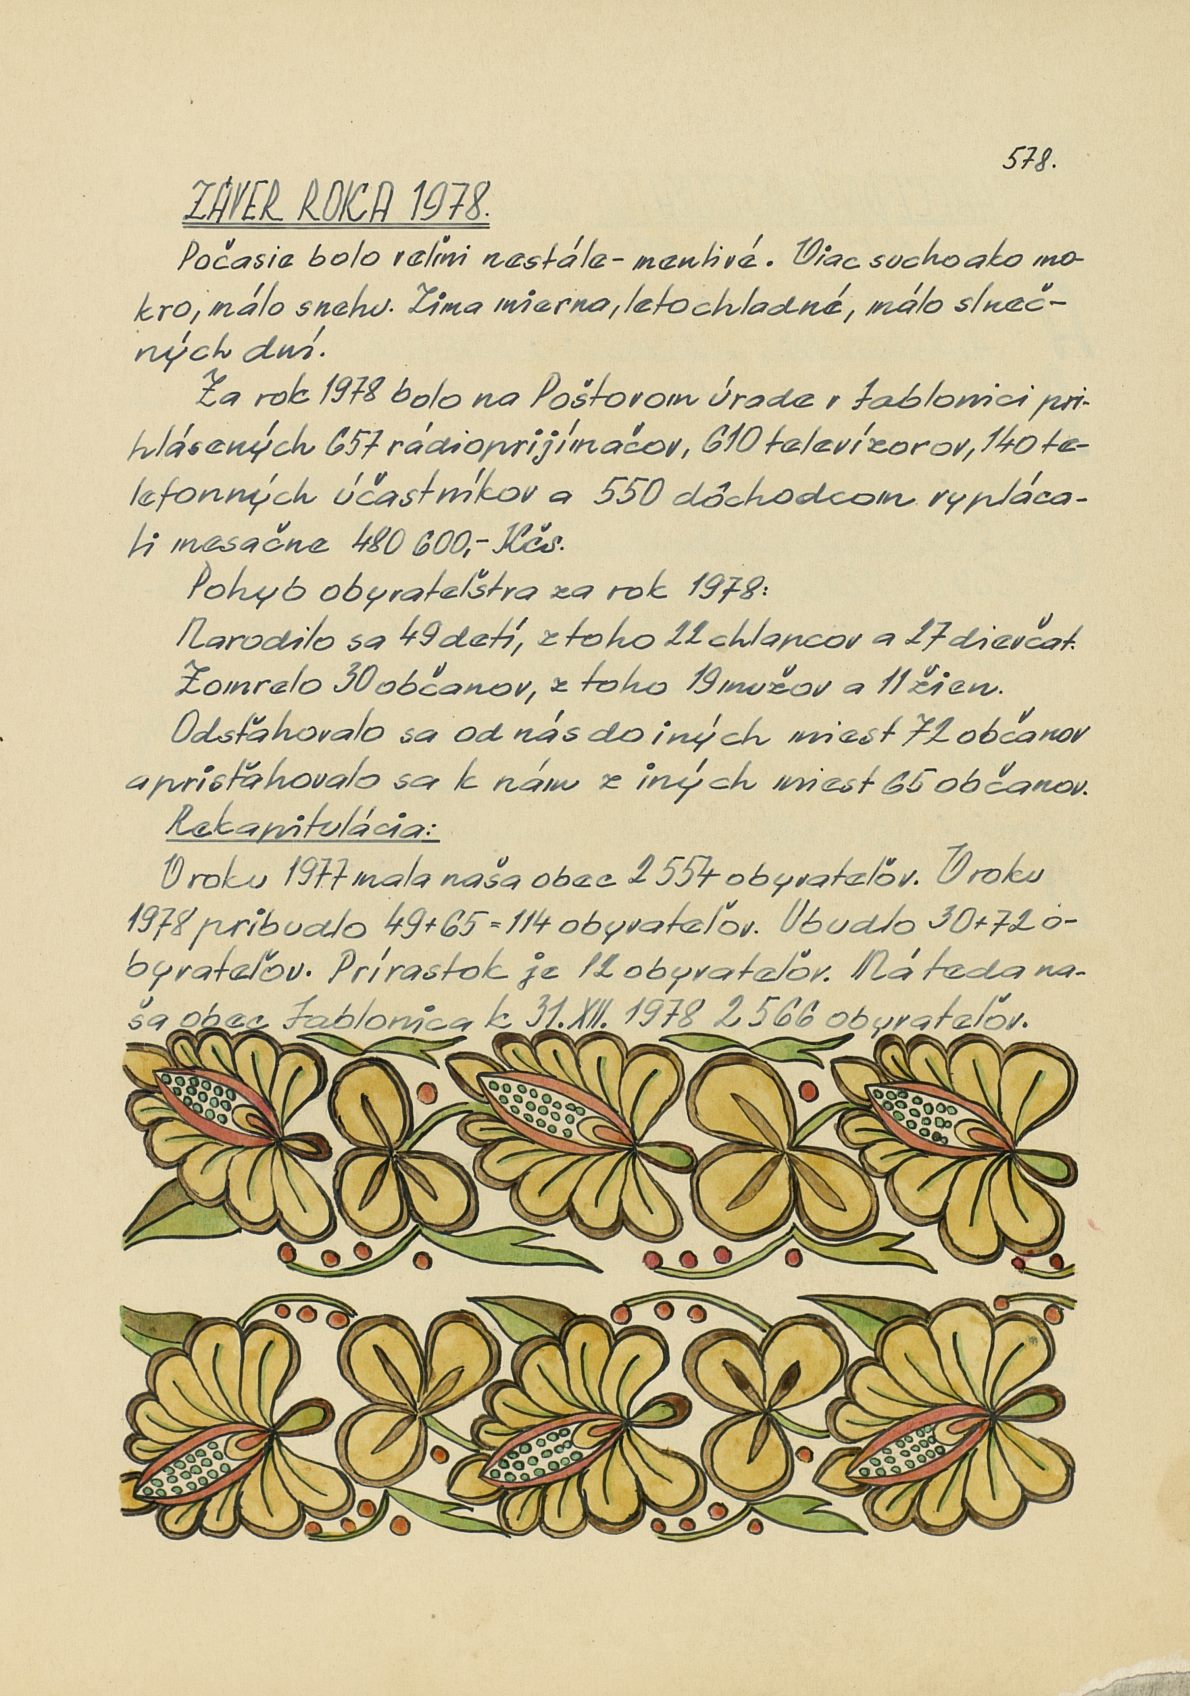 578.
ZÁVER ROKA 1978.
Počasie bolo veľmi nestále - menlivé. Viac sucho ako mo-
kro, málo snehu. Zima mierna, leto chladné, málo slneč-
ných dní.
Za rok 1978 bolo na Poštovom úrade v Jablonici pri-
hlásených 657 rádioprijímačov, 610 televízorov, 140 te-
lefonných účastníkov a 550 dôchodcom vypláca-
li mesačne 480 600,- Kčs.
Pohyb obyvateľstva za rok 1978:
Narodilo sa 49 detí, z toho 22 chlapcov a 27 dievčat.
Zomrelo 30 občanov, z toho 19 mužov a 11 žien.
Odsťahovalo sa od nás do iných miest 72 občanov
a prisťahovalo sa k nám z iných miest 65 občanov.
Rekapitulácia:
V roku 1977 mala naša obec 2 554 obyvateľov. V roku
1978 pribudlo 49+65=114 obyvateľov. Ubudlo 30+72 o-
byvateľov. Prírastok je 12 obyvateľov. Má teda na-
ša obec Jablonica k 31. XII. 1978 2 566 obyvateľov.